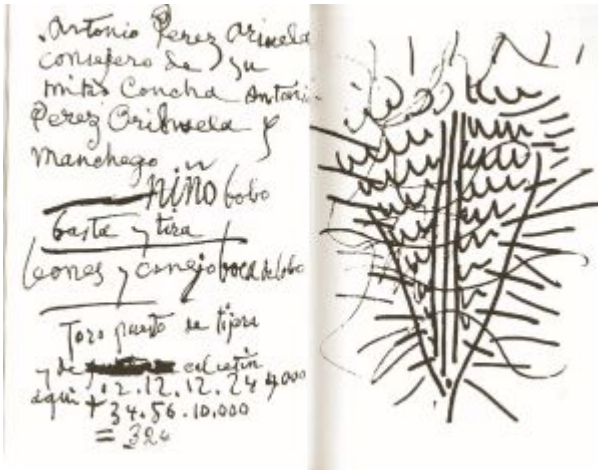 Antonio Perez
consejero de su
Concha Antonio
Perez Orihuela y
Manchego
niño bobo
basta y tira
leones y conejo boca de lobo
Toro puesto de tijera
y de calcetin
aqui + 02.12.12.24 4,000
34.56.10,000
= 324